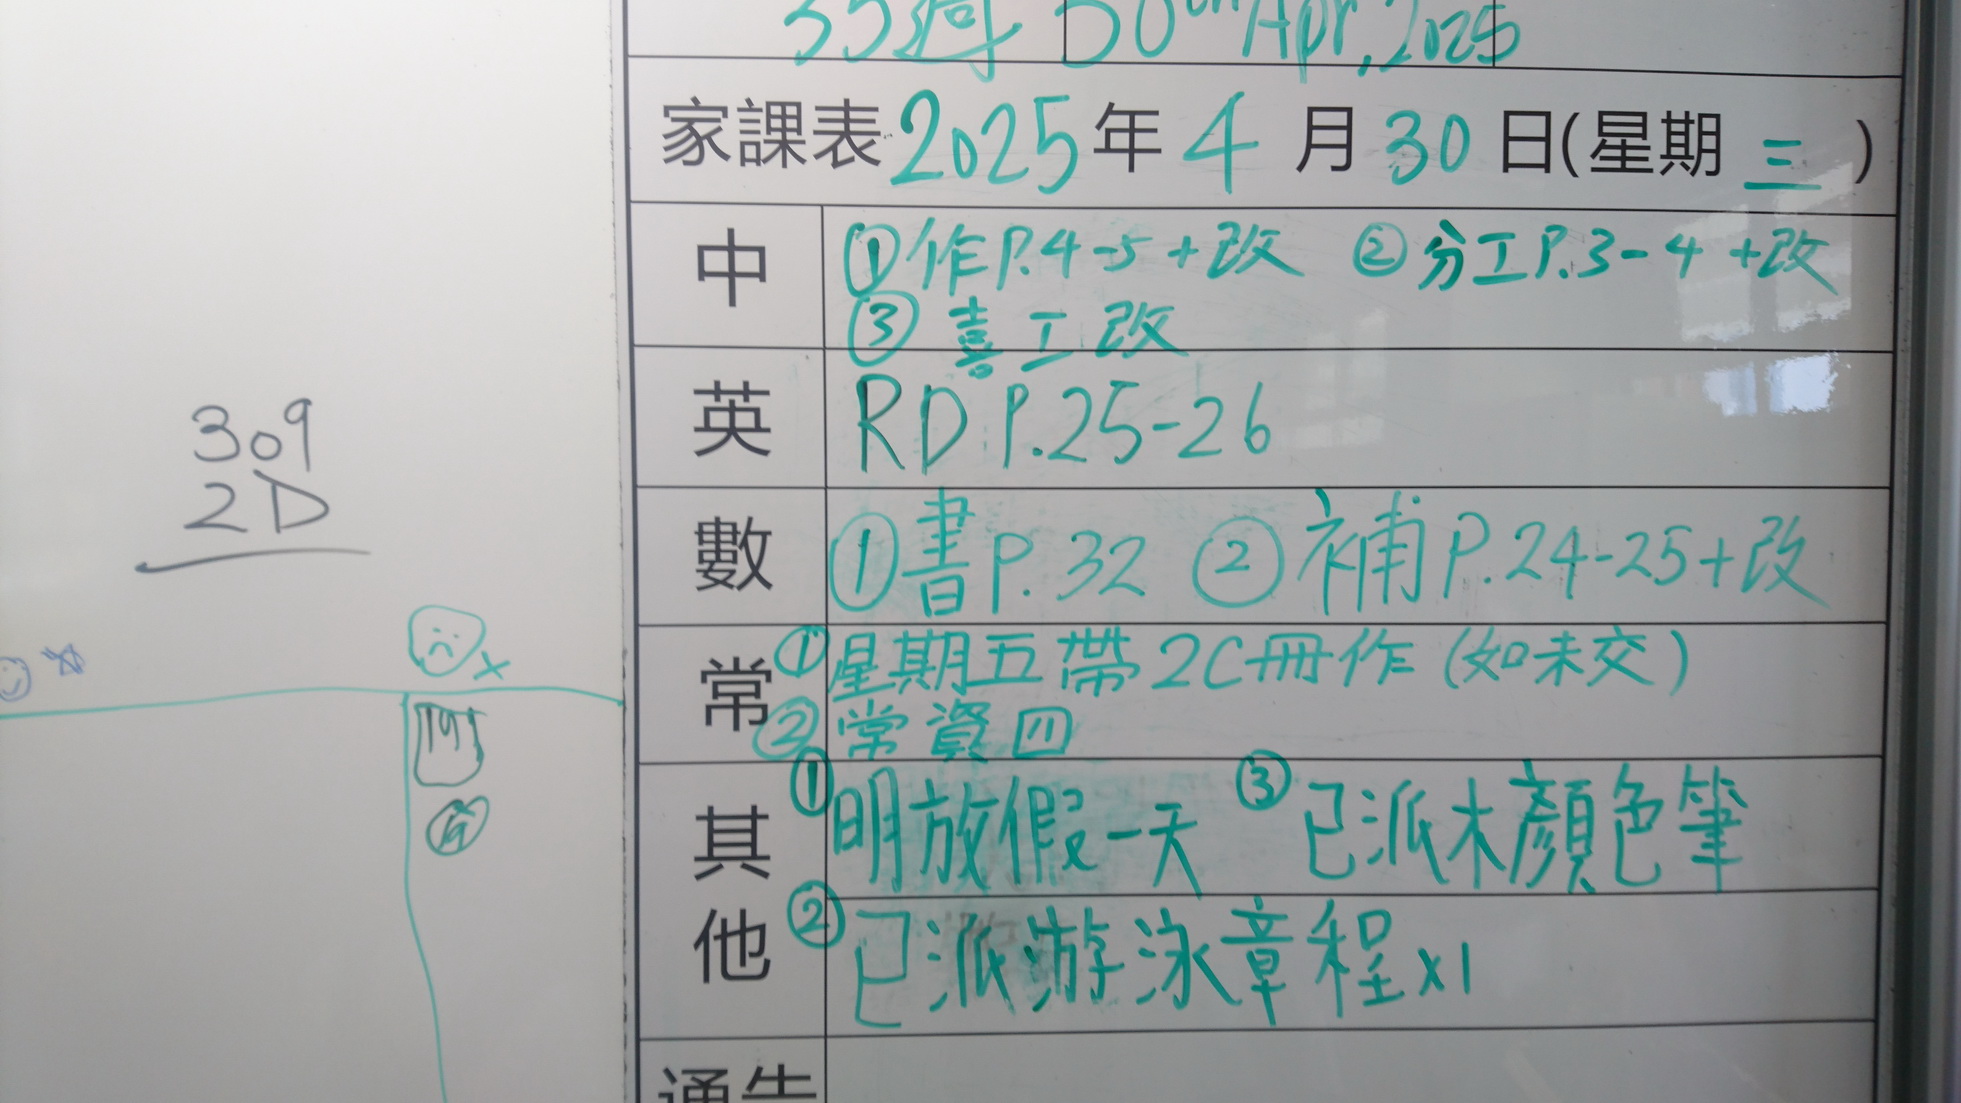 35週 30th Apr, 2025
家課表 2025年 4 月 30 日(星期 三 )
中 ①作P.4-5+改 ②分工P.3-4+改
③喜工改
英 RD P.25-26
數 ①書P.32 ②補P.24-25+改
常 ①星期五帶2C冊作(如未交)
②常資四
其他 ①明放假一天 ③已派木顏色筆
②已派游泳章程x1
通告
309
2D